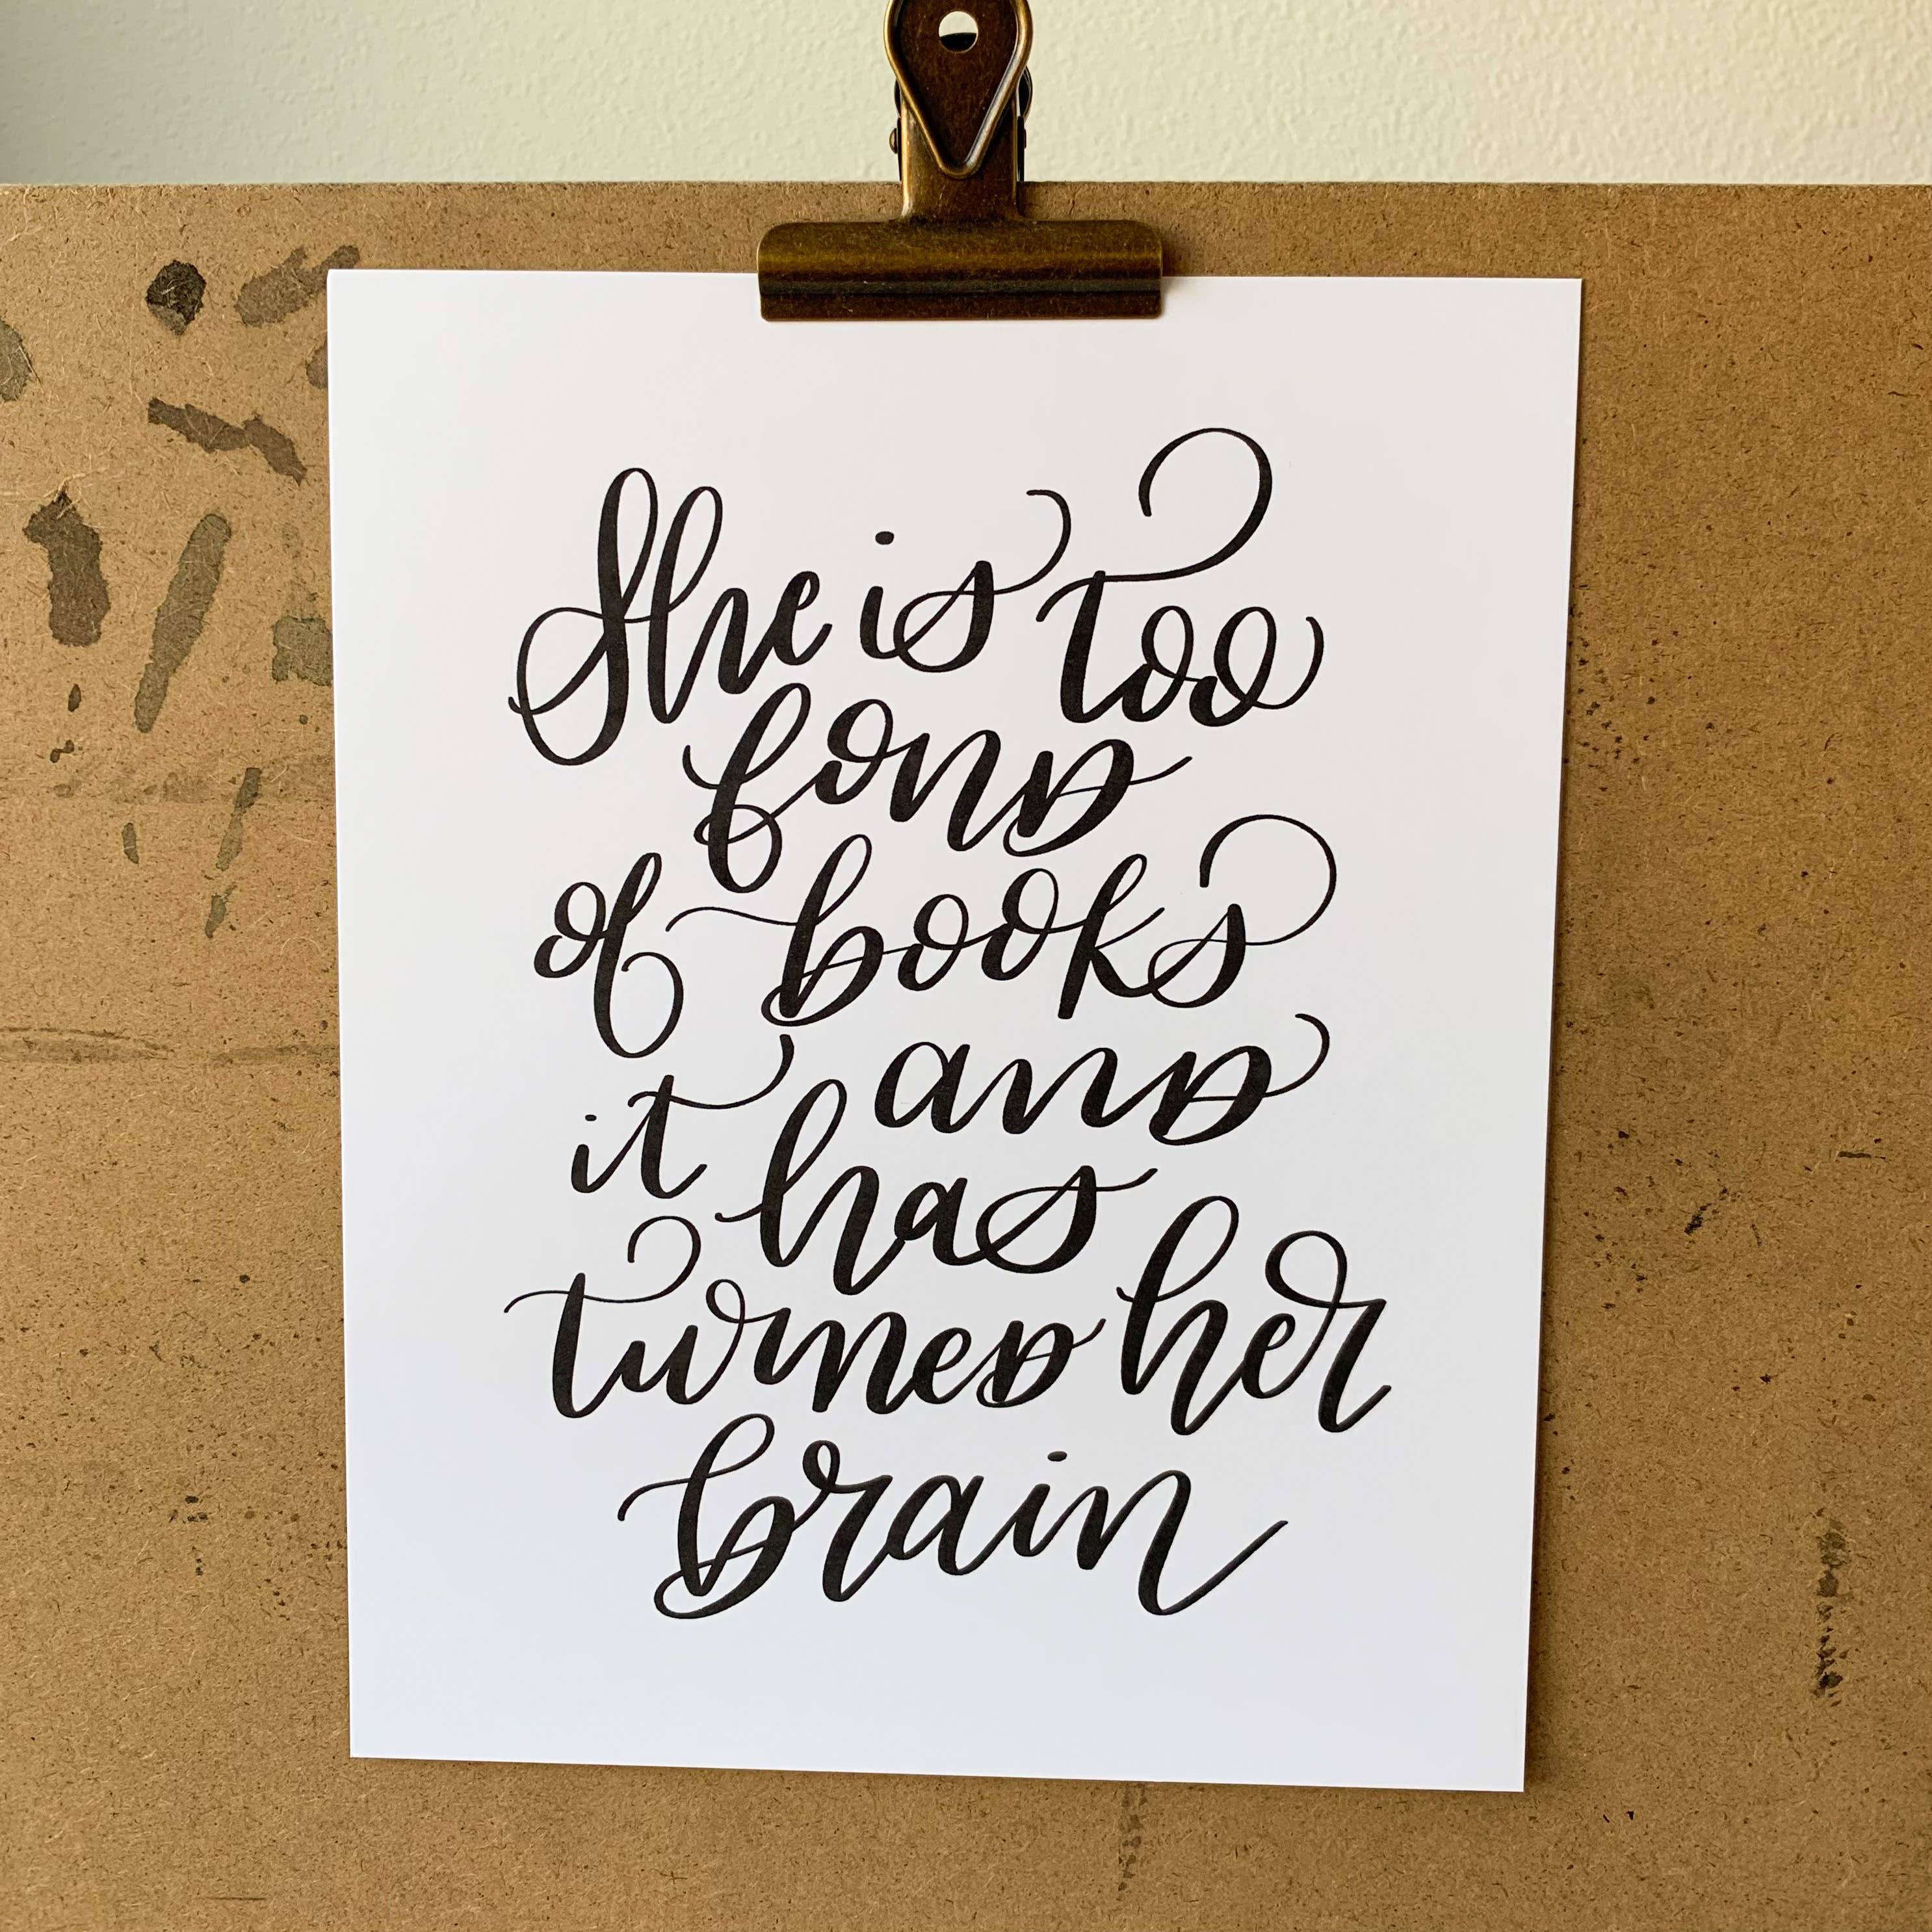 She is too
fond
of books
and
it has
turned her
brain